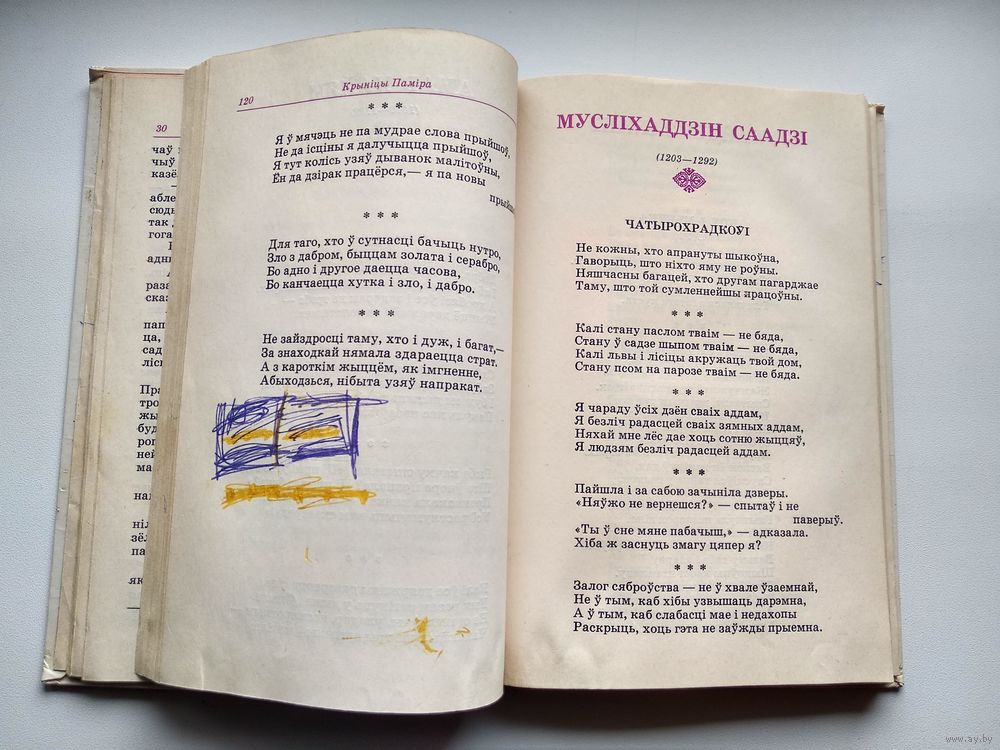 30
чаў
чыў
казё
—
абле
сюдь
так
гога
адни
раза
ска
пап
ца,
сад
ліс
Пра
тро
жы
буд
рог
ней
ма
на
ніл
зёл
па
як
120
Крыніцы Паміра
* * *
Я ў мячэць не па мудрае слова прыйшоў,
Не да ісціны я далучыцца прыйшоў,
Я тут колісь узяў дыванок малітоўны,
Ён да дзірак працёрся,— я па новы
прыйш
* * *
Для таго, хто ў сутнасці бачыць нутро,
Зло з дабром, быццам золата і серабро,
Бо адно і другое даецца часова,
Бо канчаецца хутка і зло, і дабро.
* * *
Не зайздросці таму, хто і дуж, і багат,—
За знаходкай нямала здараецца страт.
А з кароткім жыццём, як імгненне,
Абыходзься, нібыта узяў напракат.
МУСЛІХАДДЗІН СААДЗІ
(1203—1292)
ЧАТЫРОХРАДКОЎІ
Не кожны, хто апрануты шыкоўна,
Гаворыць, што ніхто яму не роўны.
Няшчасны багацей, хто другам пагарджае
Таму, што той сумленнейшы працоўны.
* * *
Калі стану паслом тваім — не бяда,
Стану ў садзе шыпом тваім — не бяда,
Калі львы і лісіцы акружаць твой дом,
Стану псом на парозе тваім — не бяда.
* * *
Я чараду ўсіх дзён сваіх аддам,
Я безліч радасцей сваіх зямных аддам,
Няхай мне лёс дае хоць сотню жыццяў,
Я людзям безліч радасцей аддам.
* * *
Пайшла і за сабою зачыніла дзверы.
«Няўжо не вернешся?» — спытаў і не
паверыў.
«Ты ў сне мяне пабачыш,» — адказала.
Хіба ж заснуць змагу цяпер я?
* * *
Залог сяброўства — не ў хвале ўзаемнай,
Не ў тым, каб хібы узвышаць дарэмна,
А ў тым, каб слабасці мае і недахопы
Раскрыць, хоць гэта не заўжды прыемна.
www.ay.by